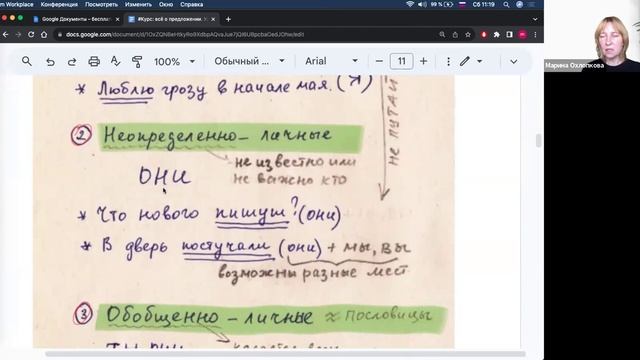 Workplace Встреча Окно Справка
99 % Сб 11:19
Google Документы – бесплат
#Курс: всё о предложении. У
docs.google.com/document/d/1OxZQNBeHtkyRo9XdbpAQvaJue7jQI6UBpcbaGedJOhw/edit
100% Обычный ... Arial 11
Марина Охлопкова
* Люблю грозу в начале мая. (Я)
не путай
② Неопределенно – личные
не известно или
не важно кто
они
* Что нового пишут? (они)
* В дверь постучали (они) + мы, вы
возможны разные мест
③ Обобщенно – личные ≈ пословицы